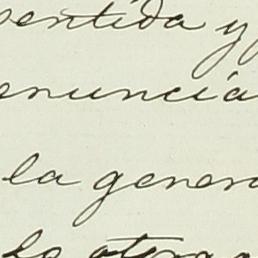 sentida y
enuncia
la genera